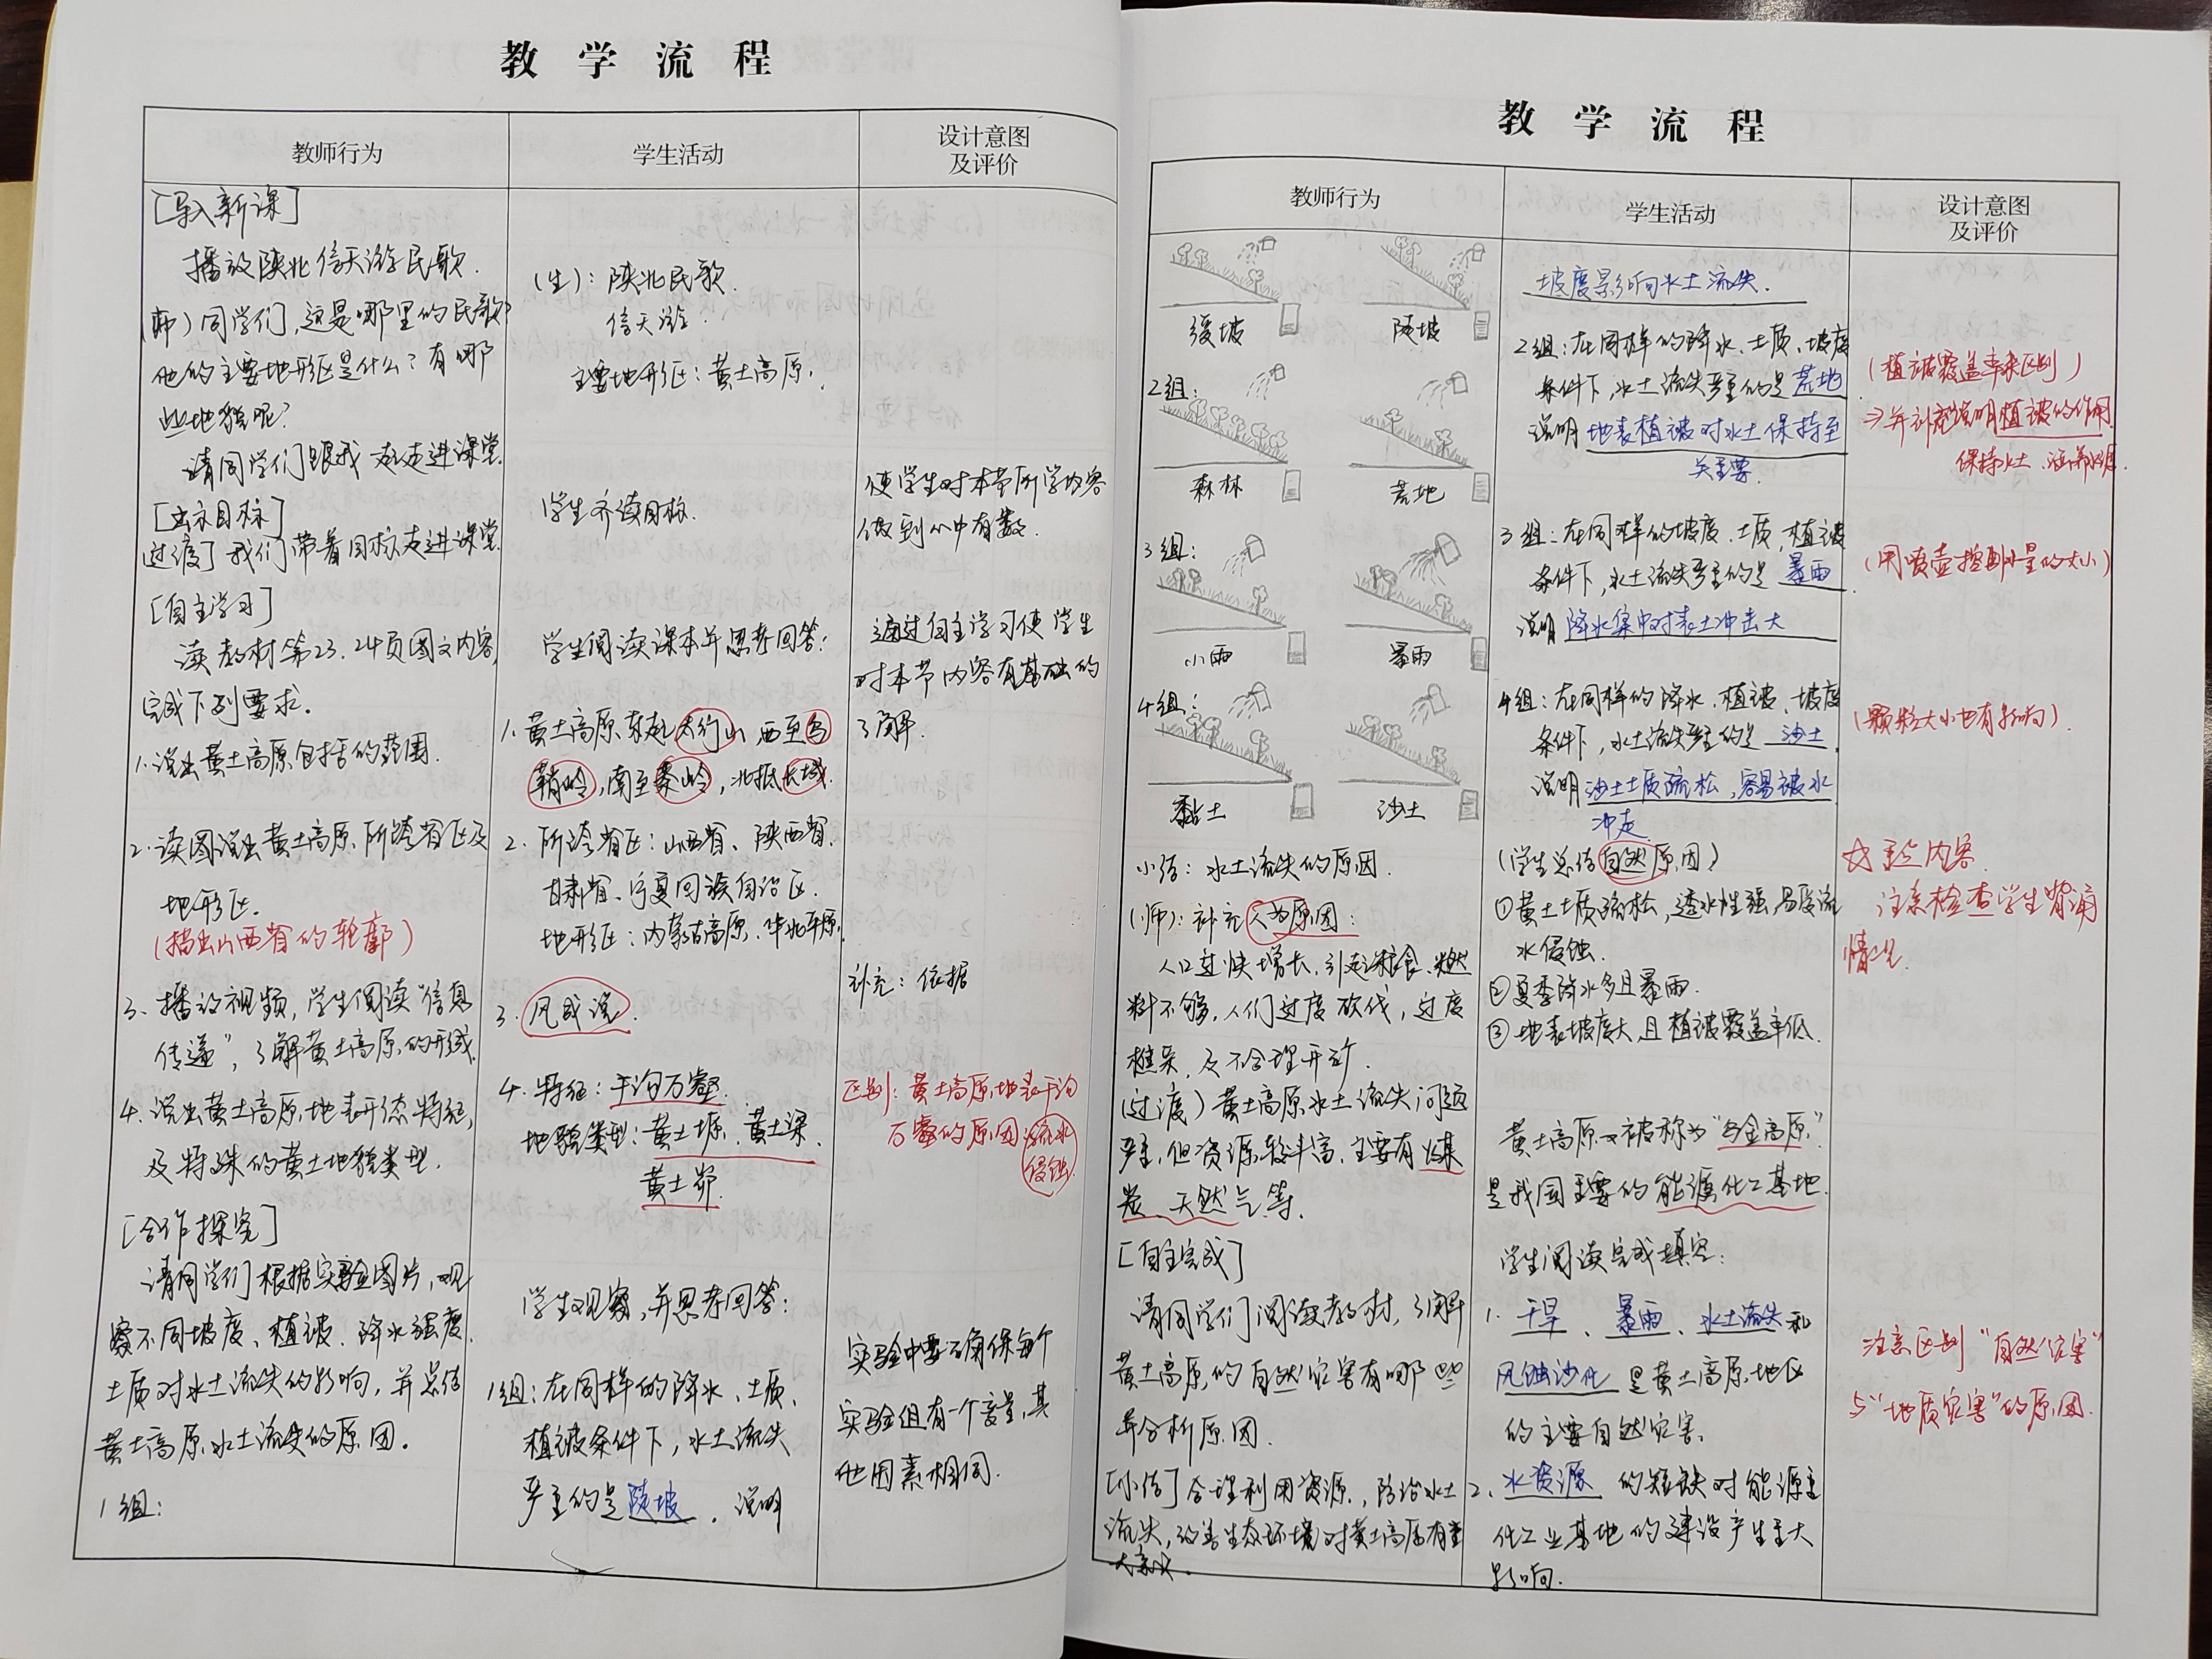 教学流程
教师行为
学生活动
设计意图
及评价
[导入新课]
播放陕北信天游民歌.
(师)同学们,这是哪里的民歌?
他的主要地形区是什么?有哪
些地貌呢?
请同学们跟我走进课堂.
[出示目标]
过渡了我们带着目标走进课堂
[自主学习]
读教材第23.24页图文内容,
完成下列要求.
1.说出黄土高原包括的范围.
2.读图说出黄土高原所跨省区及
地形区.
(描出山西省的轮廓)
3、播放视频,学生阅读“信息
传递”,了解黄土高原的形成.
4.说出黄土高原地表形态特征,
及特殊的黄土地貌类型.
[合作探究]
请同学们根据实验图片,观
察不同坡度、植被.降水强度.
土质对水土流失的影响,并总结
黄土高原水土流失的原因.
1组:
(生):陕北民歌.
信天游.
主要地形区:黄土高原.
学生齐读目标.
学生阅读课本并思考回答:
1.黄土高原东起太行山,西至乌
鞘岭,南至秦岭,北抵长城.
2.所跨省区:山西省、陕西省.
甘肃省、宁夏回族自治区.
地形区:内蒙古高原、华北平原.
3.风成说.
4.特征:千沟万壑.
地貌类型:黄土塬、黄土梁.
黄土峁.
学生观察,并思考回答:
1组:在同样的降水、土质、
植被条件下,水土流失
严重的是陡坡.说明
使学生对本节所学内容
做到心中有数.
通过自主学习使学生
对本节内容有基础的
了解.
补充:依据
区别:黄土高原地表千沟
万壑的原因流水
侵蚀
实验中要确保每个
实验组有一个变量,其
他因素相同.
教学流程
教师行为
学生活动
设计意图
及评价
缓坡 陡坡
2组:
森林 荒地
3组:
小雨 暴雨
4组:
黏土 沙土
小结:水土流失的原因.
(师):补充人为原因:
人口过快增长,引起粮食、燃
料不够,人们过度砍伐,过度
樵采,及不合理开矿.
(过渡)黄土高原水土流失问题
严重,但资源较丰富,主要有煤
炭、天然气等.
[自主完成]
请同学们阅读教材,了解
黄土高原的自然灾害有哪些
并分析原因.
[小结]合理利用资源,防治水土
流失,改善生态环境对黄土高原有重
大意义.
坡度影响水土流失.
2组:在同样的降水、土质、坡度
条件下,水土流失严重的是荒地
说明地表植被对水土保持至
关重要.
3组:在同样的坡度、土质,植被
条件下,水土流失严重的是暴雨
说明降水集中对表土冲击大
4组:在同样的降水、植被、坡度
条件下,水土流失严重的是沙土.
说明沙土土质疏松,容易被水
冲走
(学生总结自然原因)
①黄土土质疏松,透水性强,易受流
水侵蚀.
②夏季降水多且暴雨.
③地表坡度大,且植被覆盖率低.
黄土高原又被称为“乌金高原”
是我国重要的能源化工基地.
学生阅读完成填空:
1.干旱、暴雨、水土流失和
风蚀沙化是黄土高原地区
的主要自然灾害.
2、水资源的短缺对能源重
化工业基地的建设产生重大
影响.
(植被覆盖率来区别)
→并补充说明植被的作用
保持水土、涵养水源.
(用喷壶控制水量的大小)
(颗粒大小也有影响).
☆重点内容
注意检查学生背诵
情况.
注意区别“自然灾害”
与“地质灾害”的原因.